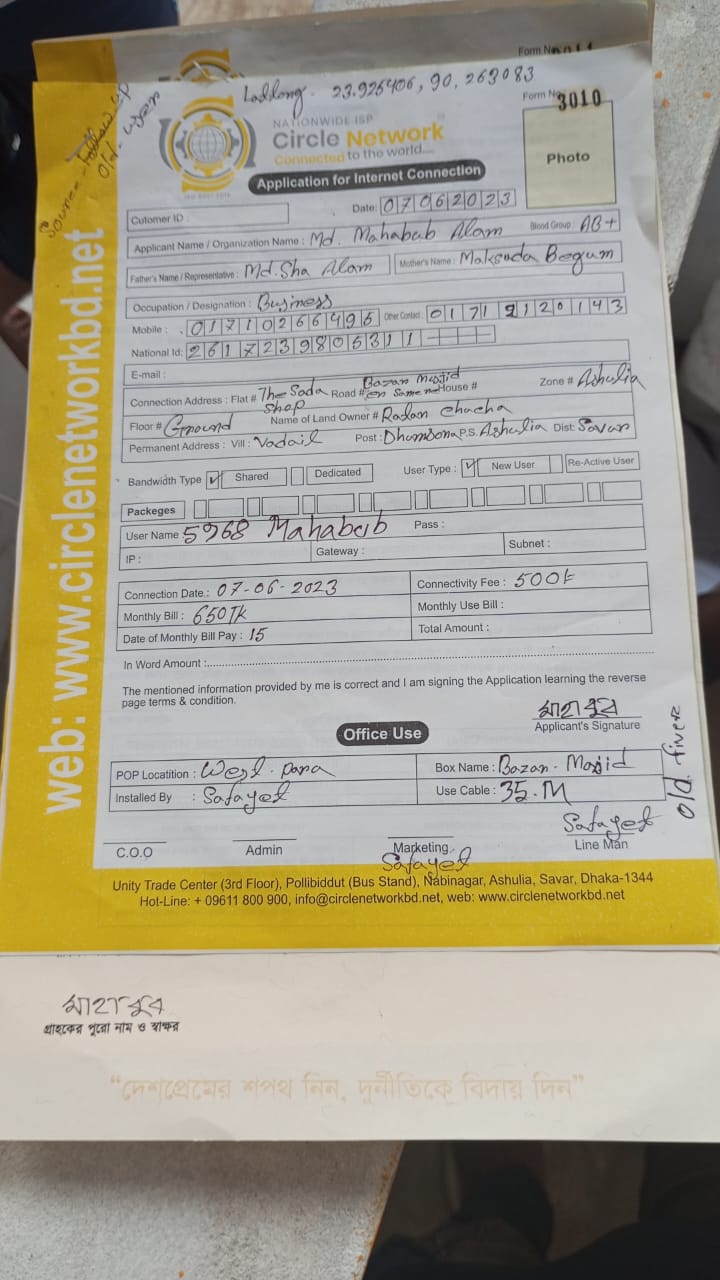 Form No
Latlong - 23.926406, 90.263083
Source - follow up
Old - user
Form No 3010
NATIONWIDE ISP
Circle Network
Connected to the world....
Photo
Application for Internet Connection
Date: 07062023
Cutomer ID :
Applicant Name / Organization Name : Md. Mahabub Alam Blood Group : AB+
Father's Name / Representative : Md. Sha Alam Mother's Name : Maksuda Begum
Occupation / Designation : Business
Mobile : 01710266495 Other Contact : 01712120143
National Id: 2617239805311
E-mail :
Connection Address : Flat # The Soda Shop Road # Bazar Masjid House # Zone # Ashulia
Floor # Ground Name of Land Owner # Radan chacha
Permanent Address : Vill : Vadail Post : Dhamsona P.S. Ashulia Dist: Savar
Bandwidth Type ✓ Shared Dedicated User Type : ✓ New User Re-Active User
Packeges
User Name 5968 Mahabub Pass :
IP : Gateway : Subnet :
Connection Date.: 07-06-2023 Connectivity Fee : 500৳
Monthly Bill : 650TK Monthly Use Bill :
Date of Monthly Bill Pay : 15 Total Amount :
In Word Amount :
The mentioned information provided by me is correct and I am signing the Application learning the reverse
page terms & condition.
মাহবুব
Applicant's Signature
Office Use
POP Locatition : West - para Box Name : Bazar - Masjid
Installed By : Safayet Use Cable : 35.M
Old fiver
C.O.O Admin Marketing. Safayet Safayet Line Man
Unity Trade Center (3rd Floor), Pollibiddut (Bus Stand), Nabinagar, Ashulia, Savar, Dhaka-1344
Hot-Line: + 09611 800 900, info@circlenetworkbd.net, web: www.circlenetworkbd.net
web: www.circlenetworkbd.net
মাহবুব
গ্রাহকের পুরো নাম ও স্বাক্ষর
“দেশপ্রেমের শপথ নিন, দুর্নীতিকে বিদায় দিন”